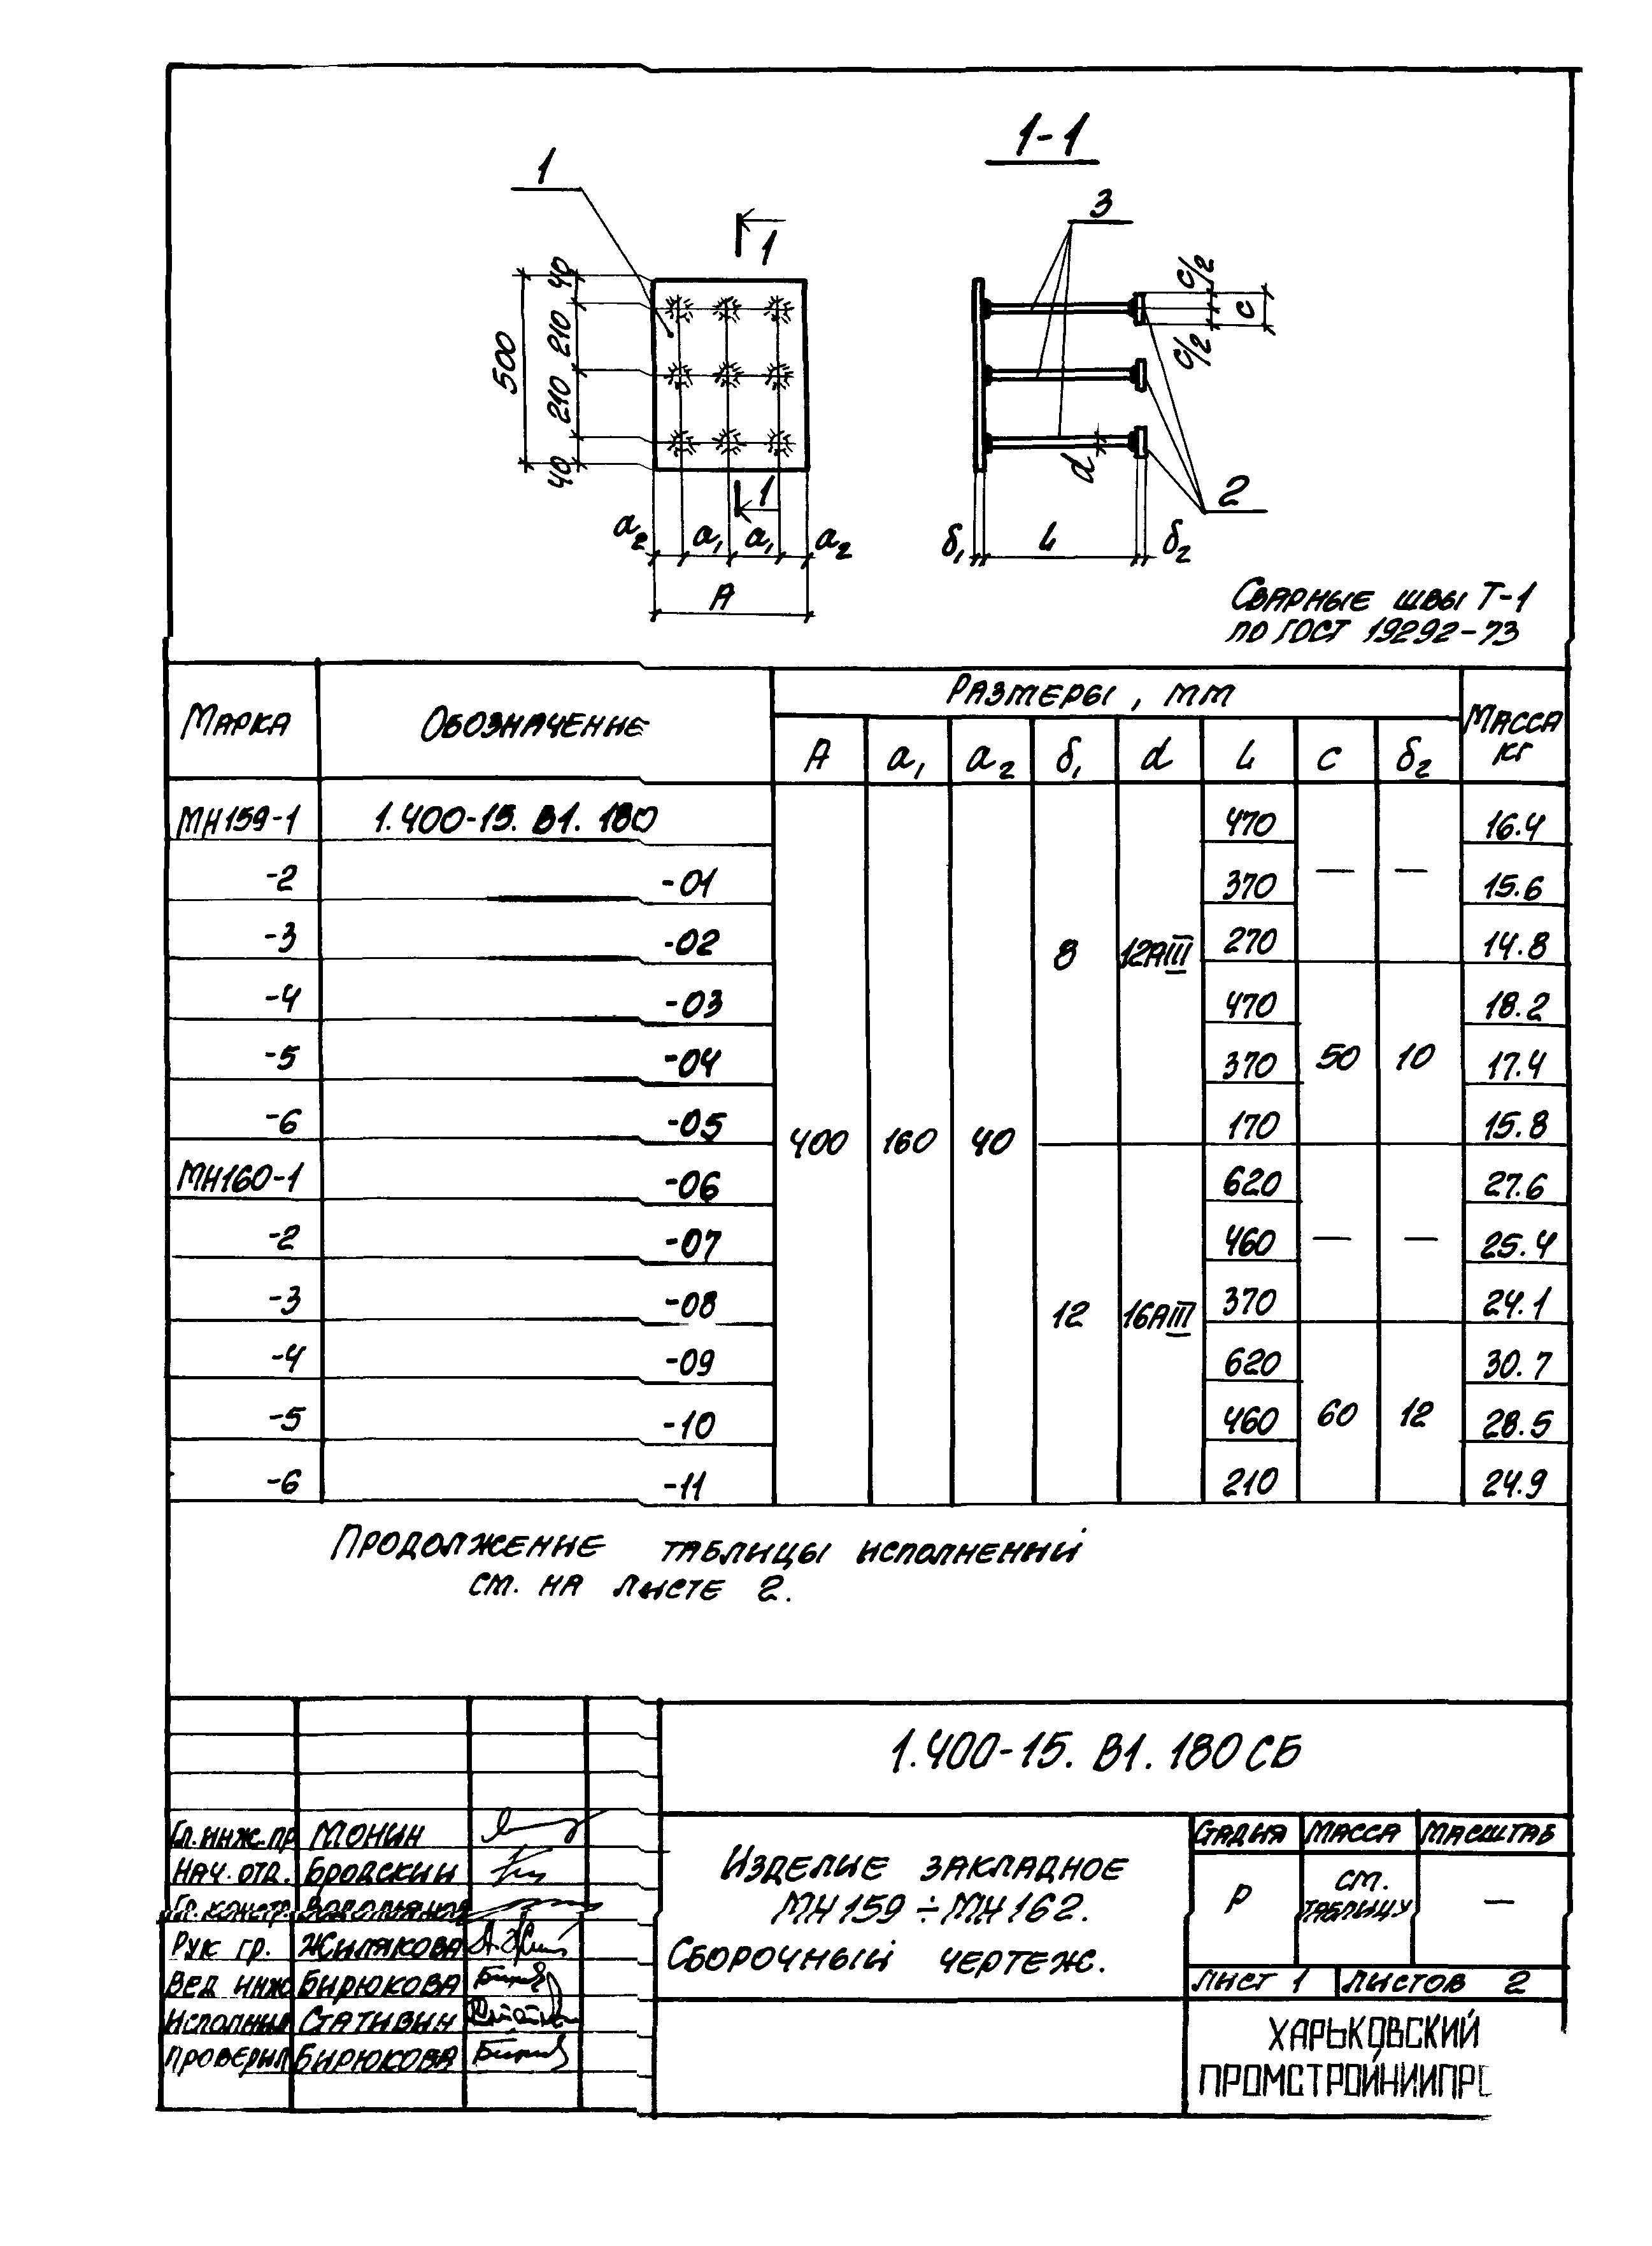 1-1
1
3
1
40
210
210
40
500
c/2
c
c/2
d
2
1
a₂ a₁ a₁ a₂
A
δ₁ L δ₂
Сварные швы Т-1
по ГОСТ 19292-73
Марка Обозначение Размеры, мм Масса кг
A a₁ a₂ δ₁ d L c δ₂
МН159-1 1.400-15. В1. 180 470 16.4
-2 -01 370 — — 15.6
-3 -02 8 12АIII 270 14.8
-4 -03 470 18.2
-5 -04 370 50 10 17.4
-6 -05 400 160 40 170 15.8
МН160-1 -06 620 27.6
-2 -07 460 — — 25.4
-3 -08 12 16АIII 370 24.1
-4 -09 620 30.7
-5 -10 460 60 12 28.5
-6 -11 210 24.9
Продолжение таблицы исполнений
см. на листе 2.
1.400-15. В1. 180 СБ
Гл.инж.пр Монин
Нач. отд. Бродский
Гр. констр.
Рук гр. Жилякова
Вед инж Бирюкова
Исполнил Стативин
Проверил Бирюкова
Изделие закладное
МН159 ÷ МН162.
Сборочный чертеж.
Стадия Масса Масштаб
Р см. таблицу —
Лист 1 Листов 2
ХАРЬКОВСКИЙ
ПРОМСТРОЙНИИПРО